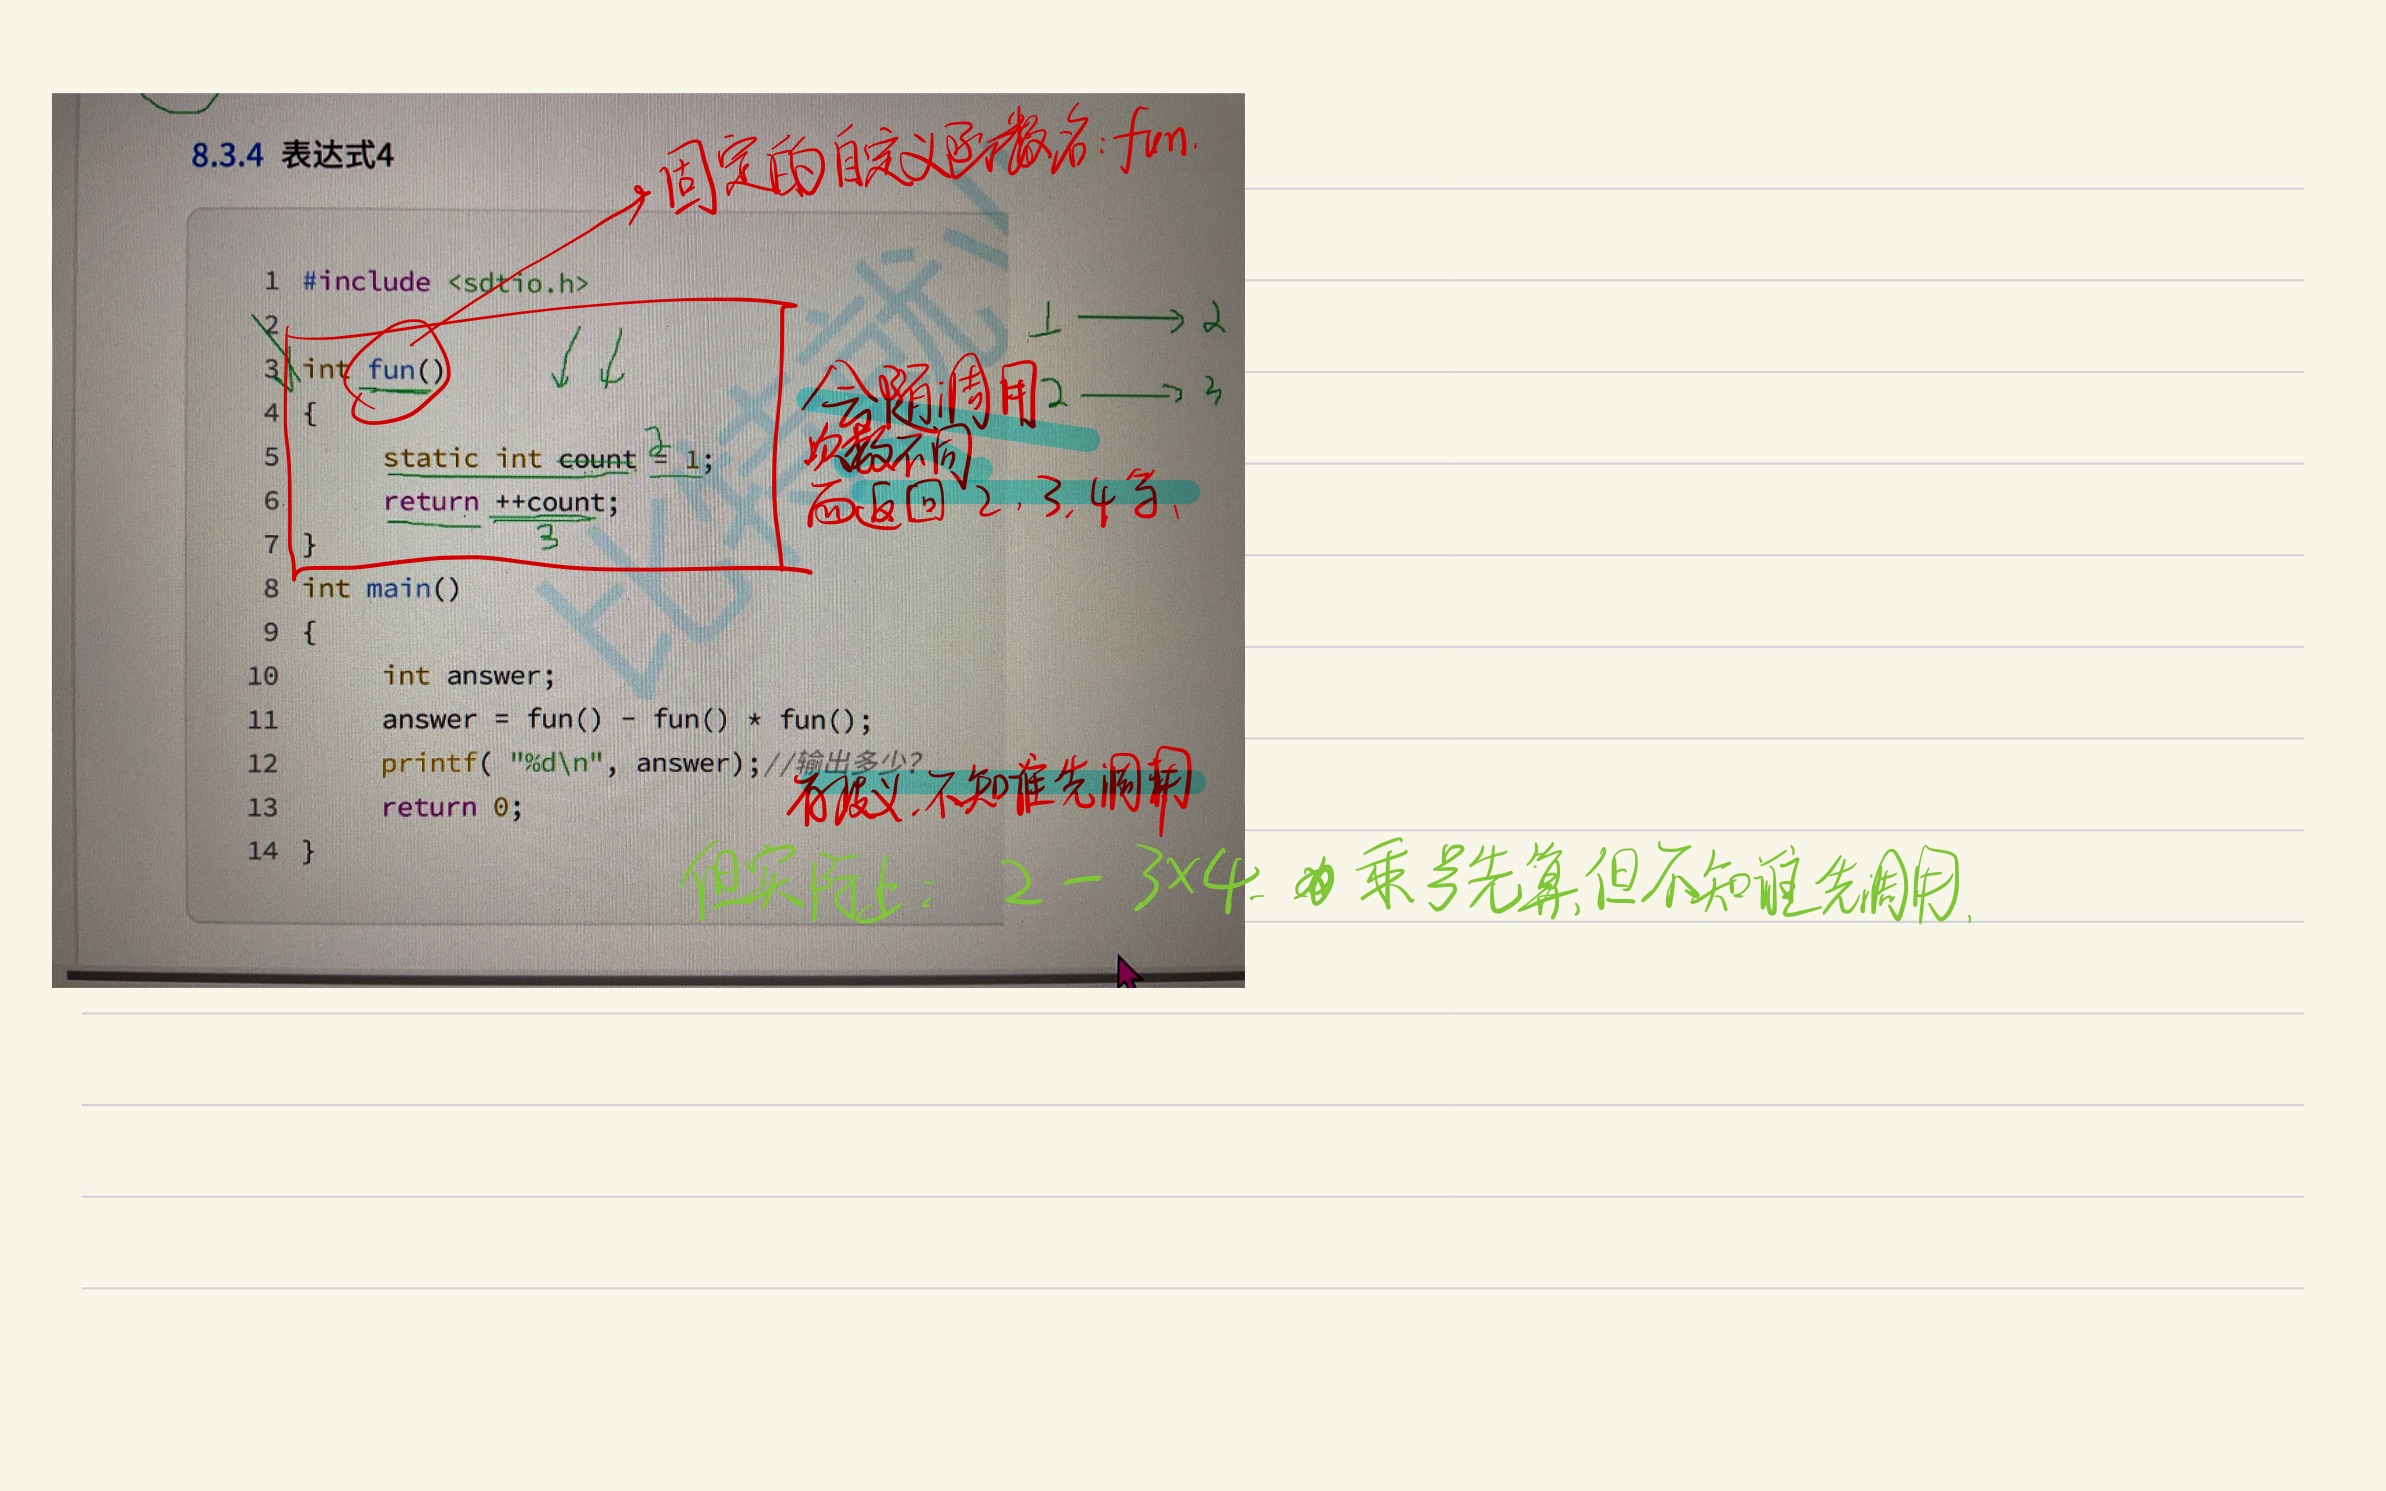 8.3.4 表达式4
固定的自定义函数名:fun.
1 #include <sdtio.h>
2
3 int fun()
4 {
5 static int count = 1;
2
6 return ++count;
3
7 }
1 → 2
2 → 3
会随调用
次数不同
而返回 2,3,4等、
8 int main()
9 {
10 int answer;
11 answer = fun() - fun() * fun();
12 printf( "%d\n", answer);//输出多少?
有歧义.不知谁先调用
13 return 0;
14 }
但实际上: 2 - 3×4. 乘号先算,但不知谁先调用.
比特就